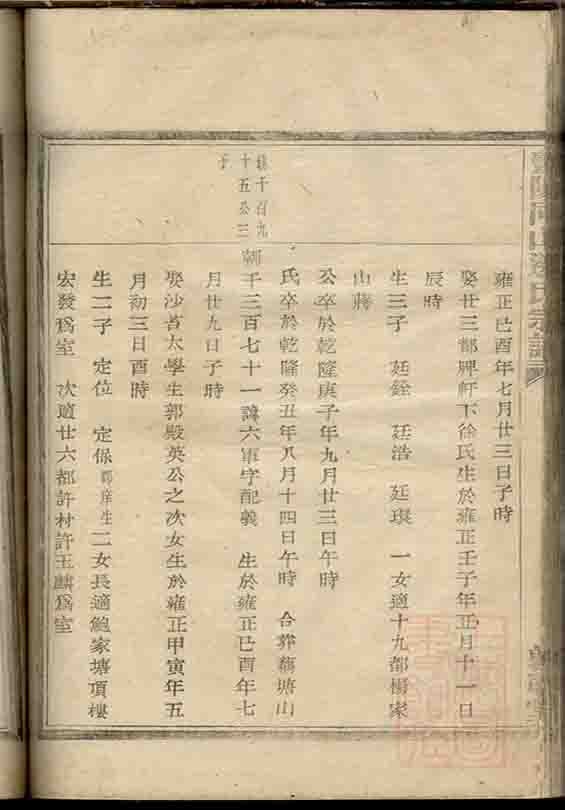 雍正己酉年七月廿三日子時
娶廿三都牌軒下徐氏生於雍正壬子年正月十一日
辰時
生三子 廷銓 廷浩 廷琪 一女適十九都楊家
山蔣
公卒於乾隆庚子年九月廿三日午時
氏卒於乾隆癸丑年八月十四日午時 合葬 塘山
千百九
十五公三
子
朝
千三百七十一諱六軍字配義 生於雍正己酉年七
月廿九日子時
娶沙苔太學生郭殿英公之次女生於雍正甲寅年五
月初三日酉時
生二子 定位 定保郡庠生 二女長適鮑家塘項樓
宏發爲室 次適廿六都許村許玉麟爲室
山 氏宗譜